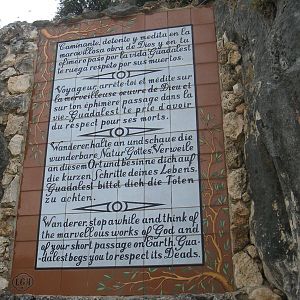 Caminante, detente y medita en la
maravillosa obra de Dios y en tu
efímero paso por la vida. Guadalest
te ruega respeto por sus muertos.
Voyageur, arrete-toi et médite sur
la merveilleuse oeuvre de Dieu et
sur ton ephimere passage dans la
vie. Guadalest te prie d'avoir
du respect pour ses morts.
Wanderer, halte an und schaue die
wunderbare Natur Gottes. Verweile
an diesem Ort und besinne dich auf
die kurzen Schritte deines Lebens.
Guadalest bittet dich die Toten
zu achten.
Wanderer, stop a while and think of
the marvellous works of God and
of your short passage on Earth. Gua-
dalest begs you to respect its Deads.